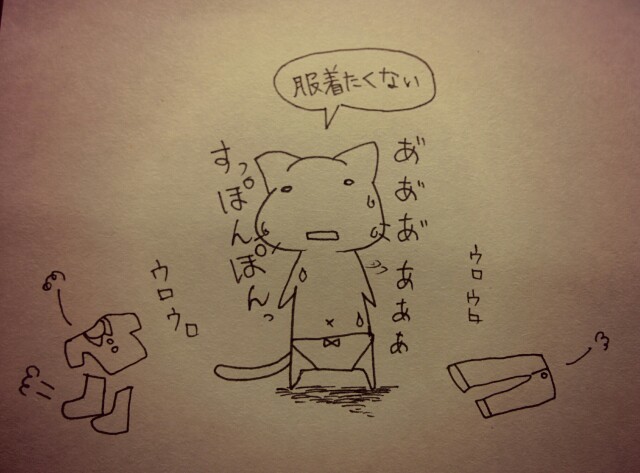 服着たくない
あ゛あ゛あ゛ぁぁぁ
すっぽんぽんっ
ウロウロ
ウロウロ